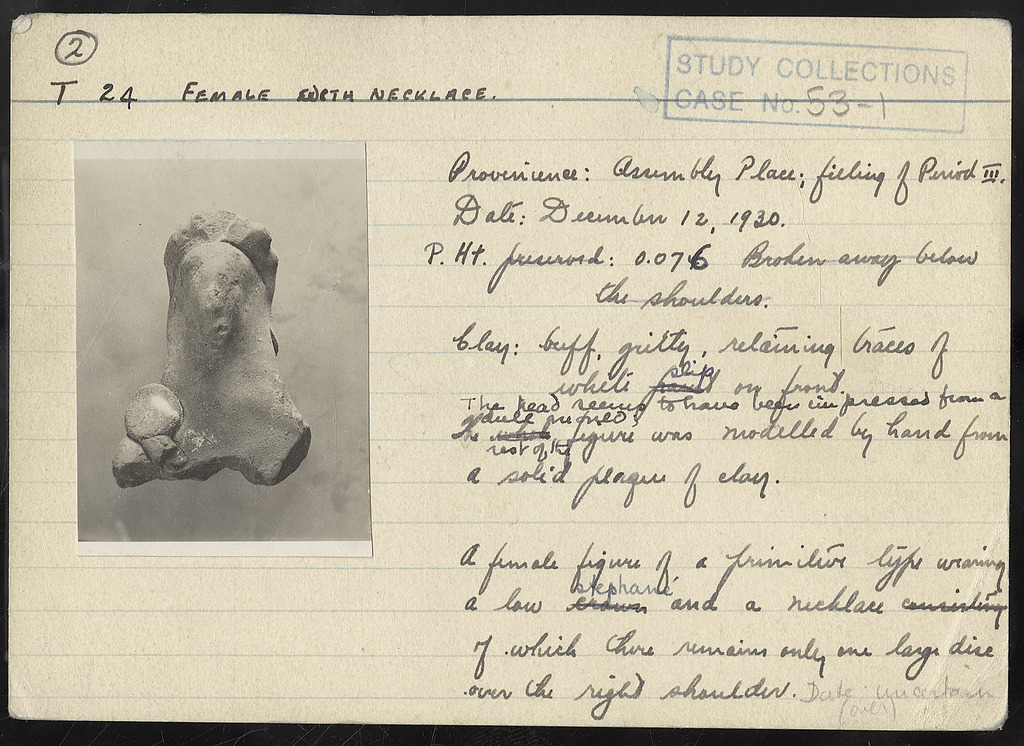 2
STUDY COLLECTIONS
CASE No. 53-1
T 24 FEMALE WITH NECKLACE.
Provenience: Assembly Place; filling of Period III.
Date: December 12, 1930.
P. Ht. preserved: 0.076 Broken away below
the shoulders.
Clay: buff, gritty, retaining traces of
slip
white paint on front.
The head seems to have been impressed from a
mould;
The whole figure was modelled by hand from
rest of the
a solid plaque of clay.
A female figure of a primitive type wearing
stephane
a low crown and a necklace consisting
of which there remains only one large disc
over the right shoulder. Date: uncertain
(over)